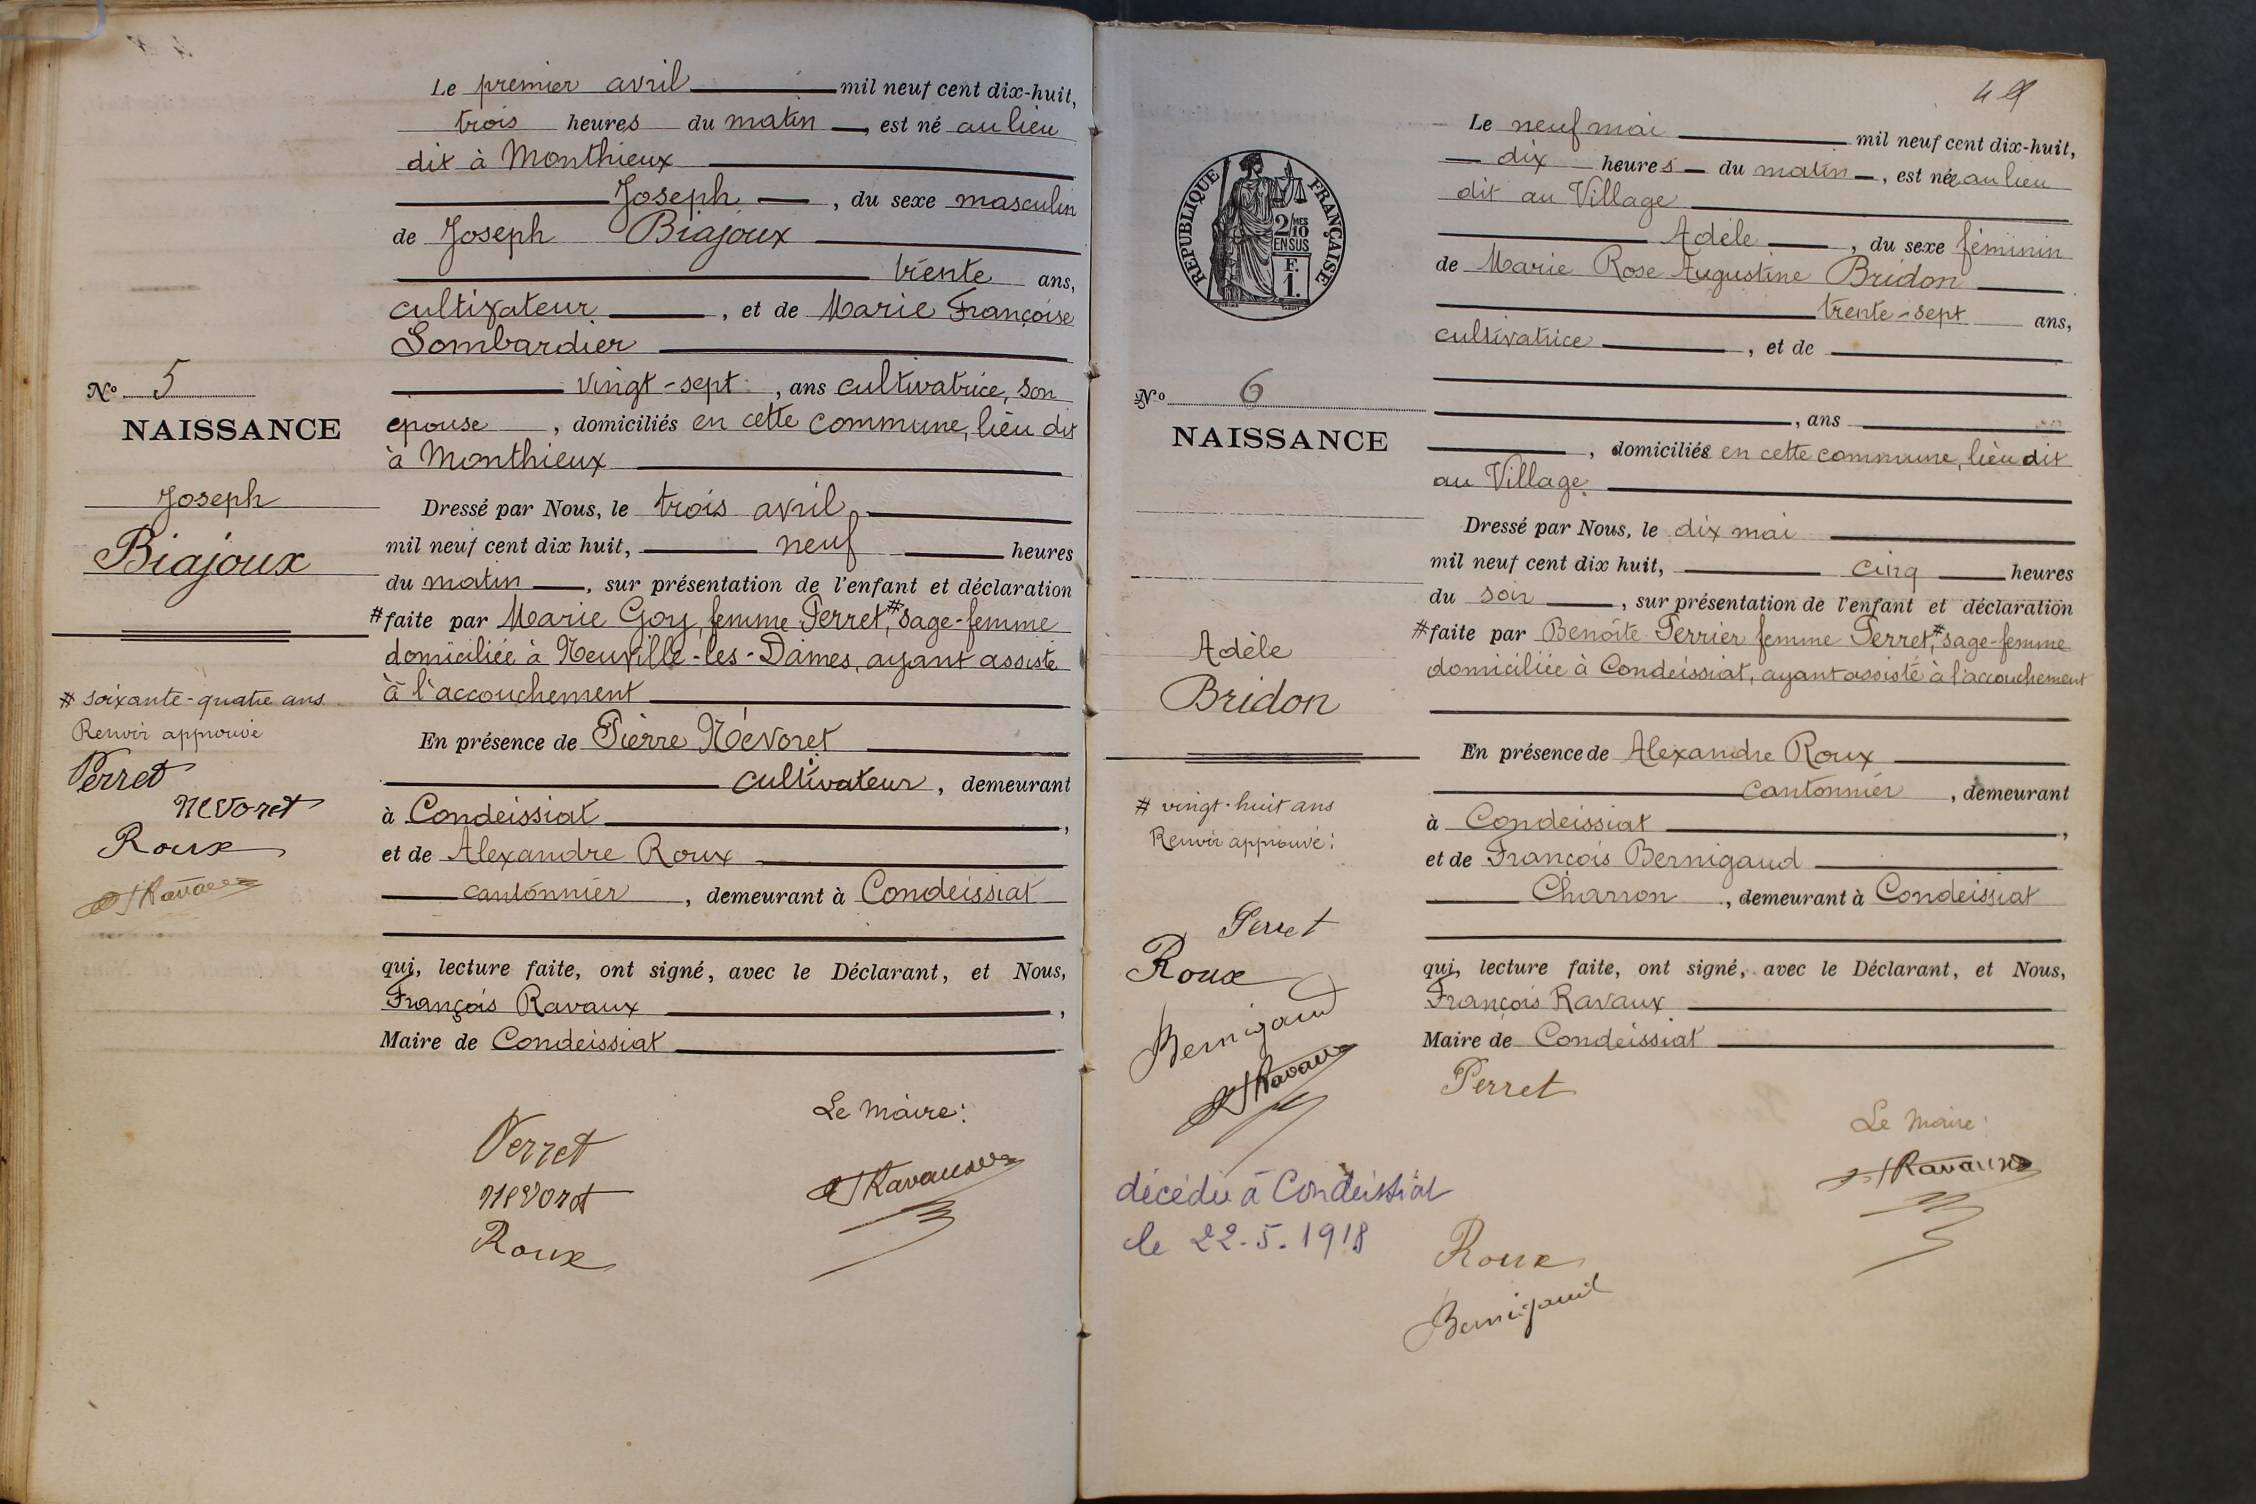 Le premier avril mil neuf cent dix-huit,
trois heures du matin, est né au lieu
dit à Monthieux
Joseph, du sexe masculin
de Joseph Biajoux
trente ans,
cultivateur, et de Marie Françoise
Lombardier
vingt-sept, ans cultivatrice, son
épouse, domiciliés en cette commune, lieu dit
à Monthieux
Nº 5
NAISSANCE
Joseph
Biajoux
Dressé par Nous, le trois avril
mil neuf cent dix huit, neuf heures
du matin, sur présentation de l'enfant et déclaration
# faite par Marie Goy, femme Perret, # sage-femme
domiciliée à Neuville-les-Dames, ayant assisté
à l'accouchement
# soixante-quatre ans
Renvoi approuvé
Perret
nevoret
Roux
Ravaux
En présence de Pierre Névoret
cultivateur, demeurant
à Condeissiat,
et de Alexandre Roux
cantonnier, demeurant à Condeissiat
qui, lecture faite, ont signé, avec le Déclarant, et Nous,
François Ravaux,
Maire de Condeissiat
Le Maire:
Perret
nevoret
Roux
Ravaux
Le neuf mai mil neuf cent dix-huit,
dix heures du matin, est née au lieu
dit au Village
Adèle, du sexe féminin
de Marie Rose Augustine Bridon
trente-sept ans,
cultivatrice, et de
, ans
, domiciliée en cette commune, lieu dit
au Village
RÉPUBLIQUE FRANÇAISE
2/MES
10
EN SUS
F.
1.
Nº 6
NAISSANCE
Adèle
Bridon
Dressé par Nous, le dix mai
mil neuf cent dix huit, cinq heures
du soir, sur présentation de l'enfant et déclaration
# faite par Benoîte Perrier femme Perret, # sage-femme
domiciliée à Condeissiat, ayant assisté à l'accouchement
# vingt-huit ans
Renvoi approuvé:
Perret
Roux
Bernigaud
Ravaux
décédée à Condeissiat
le 22-5-1918
En présence de Alexandre Roux
cantonnier, demeurant
à Condeissiat,
et de François Bernigaud
Charron, demeurant à Condeissiat
qui, lecture faite, ont signé, avec le Déclarant, et Nous,
François Ravaux
Maire de Condeissiat
Perret
Le Maire:
Ravaux
Roux
Bernigaud